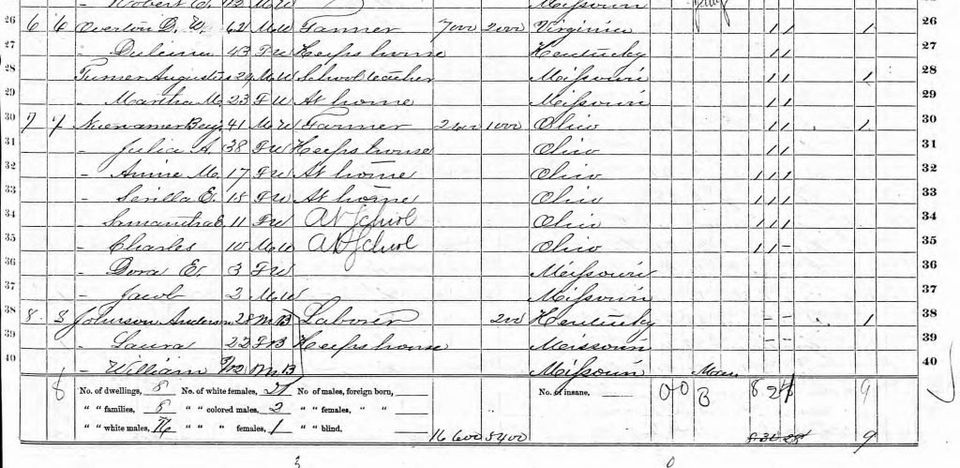 Robert E. 12 M W Missouri
26 6 6 Overton D. W. 62 M W Farmer 7000 2000 Virginia 1 1 1 26
27 - 43 F W Keeps house Kentucky 1 1 27
28 Turner Augustus 29 M W School teacher Missouri 1 1 1 28
29 - Martha M. 23 F W At home Missouri 1 1 29
30 7 7 Benj. 41 M W Farmer 1000 Ohio 1 1 1 30
31 - Julia A. 38 F W Keeps house Ohio 1 1 31
32 - Annie M. 17 F W At home Ohio 1 1 1 32
33 - E. 15 F W At home Ohio 1 1 1 33
34 - 11 F W At School Ohio 1 1 1 34
35 - Charles 10 M W At School Ohio 1 1 - 35
36 - Dora E. 3 F W Missouri 36
37 - Jacob 2 M W Missouri 37
38 8 8 Johnson Anderson 28 M B Laborer 200 Kentucky - - 1
39 - Laura 22 F B Keeps house Missouri - - 39
40 - William M B Missouri 40
8 No. of dwellings, 8 No. of white females, 21 No. of males, foreign born, No. of insane, 00 B 8 9
" " families, 8 " " colored males, 2 " " females, " "
" " white males, 16 " " " females, 1 " " blind, 16600 5400 9